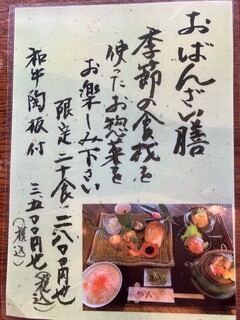 おばんざい膳
季節の食材を
使ったお惣菜を
お楽しみ下さい
限定二十食 二八〇〇円也
(税込)
和牛陶板付 三五〇〇円也
(税込)